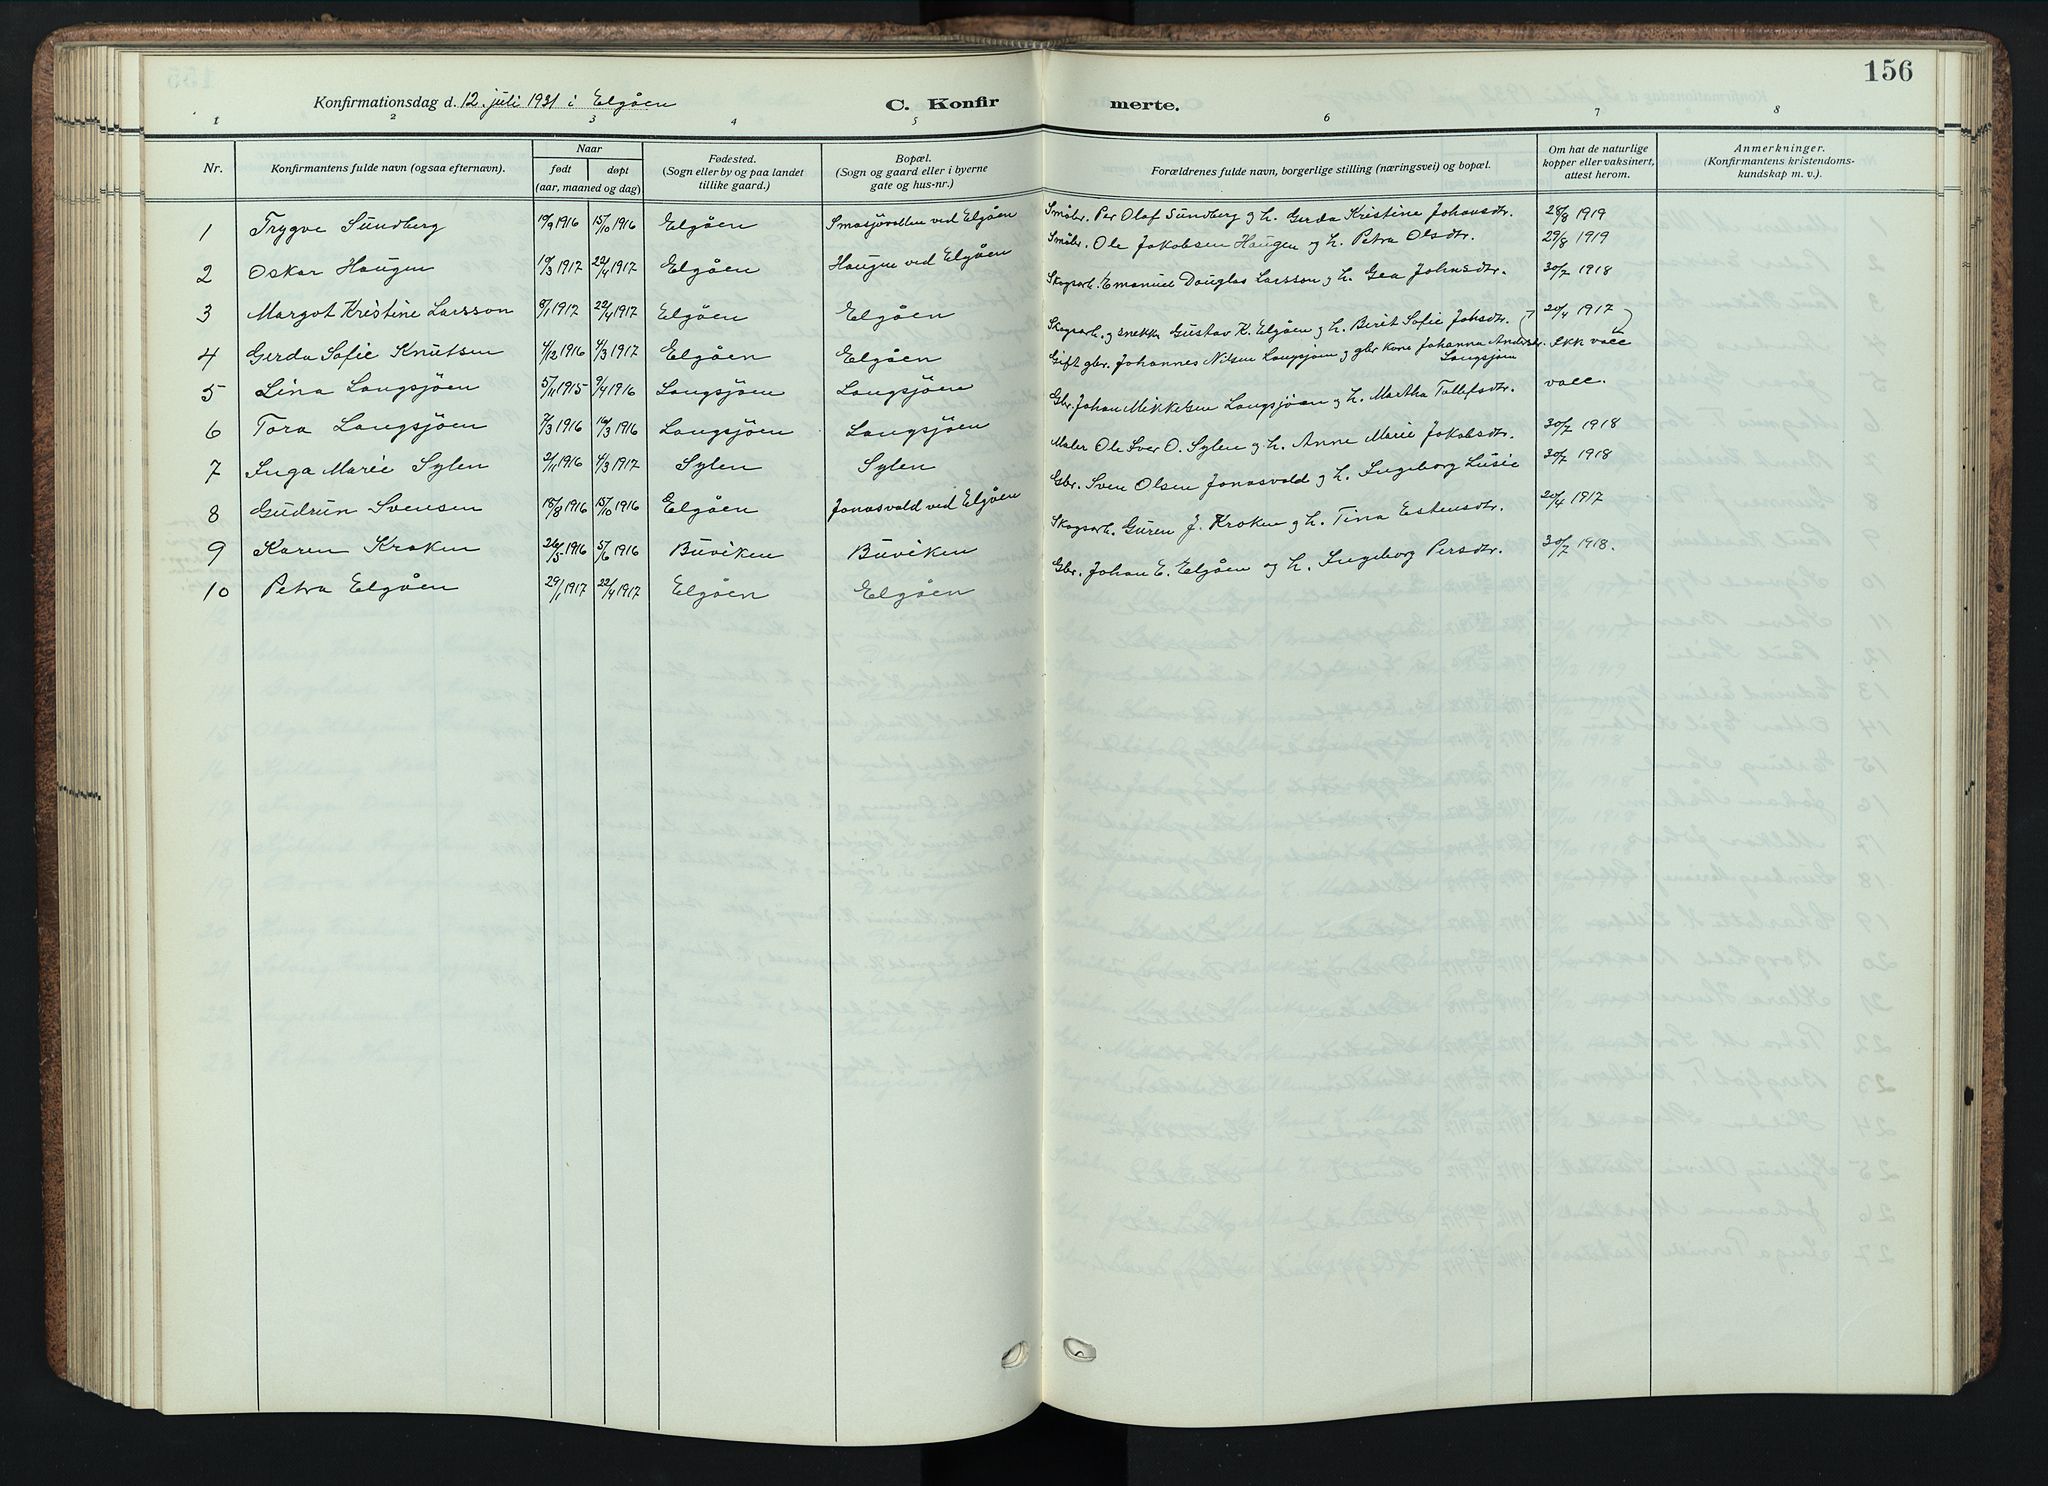 156
Konfirmationsdag d. 12. juli 1931 i Elgåen
C. Konfirmerte.
1 2 3 4 5 6 7 8
Nr. Konfirmantens fulde navn (ogsaa efternavn). Naar født døpt (aar, maaned og dag) Fødested. (Sogn eller by og paa landet tillike gaard.) Bopæl. (Sogn og gaard eller i byerne gate og hus-nr.) Forældrenes fulde navn, borgerlige stilling (næringsvei) og bopæl. Om hat de naturlige kopper eller vaksinert, attest herom. Anmerkninger. (Konfirmantens kristendoms-kundskap m. v.).
1 Trygve Sundberg 19/9 1916 15/10 1916 Elgåen Smasjøvollen ved Elgåen Småbr. Per Olaf Sundberg og h. Gerda Kristine Johansdtr. 28/8 1919
2 Oskar Haugen 19/3 1917 22/4 1917 Elgåen Haugne ved Elgåen Småbr. Ole Jakobsen Haugen og h. Petra Olsdtr. 29/8 1919
3 Margot Kristine Larsson 8/1 1917 22/4 1917 Elgåen Elgåen Skogsarb. Emanuel Douglas Larsson og h. Gea Johnsdtr. 30/7 1918
4 Gerda Sofie Knutsen 4/12 1916 4/3 1917 Elgåen Elgåen Skogsarb. og snekker Gustav K. Elgåen og h. Berit Sofie Johsdtr. 20/4 1917
5 Lina Langsjöen 5/11 1915 9/4 1916 Langsjöen Langsjöen Gift gbr. Johannes Nilsen Langsjøen og gbr kone Johanna Andersdtr. Langsjøen Ikk vacc
6 Tora Langsjöen 7/3 1916 16/3 1916 Langsjöen Langsjöen Gbr. Johan Mikkelsen Langsjöen og h. Martha Tollefsdtr. vacc.
7 Inga Marie Sylen 2/11 1916 4/3 1917 Sylen Sylen Maler Ole Iver O. Sylen og h. Anne Marie Jakobsdtr. 30/7 1918
8 Gudrun Svensen 18/8 1916 15/10 1916 Elgåen Jonasvold ved Elgåen Gbr. Sven Olsen Jonasvold og h. Ingeborg Lusie 30/7 1918
9 Karen Kroken 26/5 1916 5/6 1916 Buviken Buviken Skogsarb. Guren J. Kroken og h. Tina Estensdtr. 20/4 1917
10 Petra Elgåen 29/1 1917 22/4 1917 Elgåen Elgåen Gbr. Johan E. Elgåen og h. Ingeborg Persdtr. 30/7 1918.